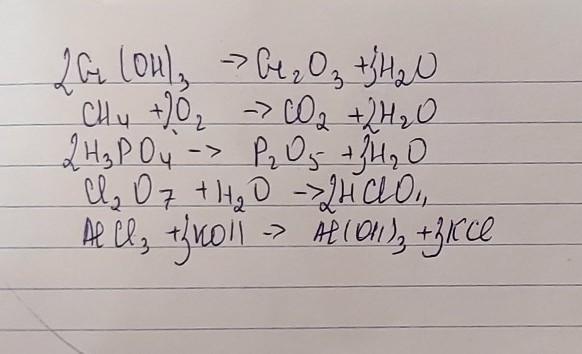 2Cr(OH)₃ → Cr₂O₃ + 3H₂O
CH₄ + 2O₂ → CO₂ + 2H₂O
2H₃PO₄ → P₂O₅ + 3H₂O
Cl₂O₇ + H₂O → 2HClO₄
AlCl₃ + 3KOH → Al(OH)₃ + 3KCl